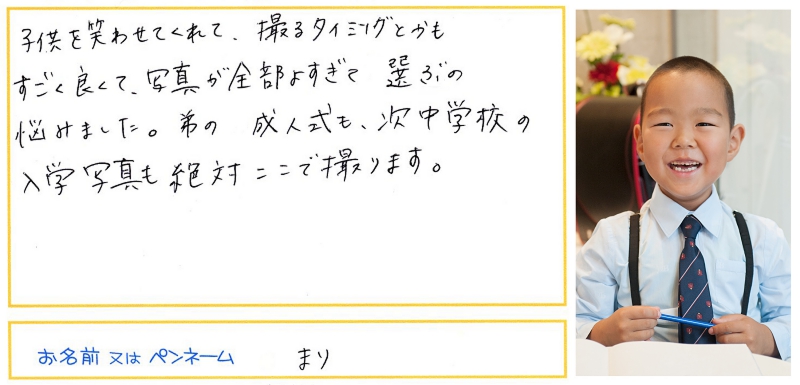 子供を笑わせてくれて、撮るタイミングとかも
すごく良くて、写真が全部よすぎて 選ぶの
悩みました。弟の 成人式も、次中学校の
入学写真も絶対ここで撮ります。
お名前 又は ペンネーム まり